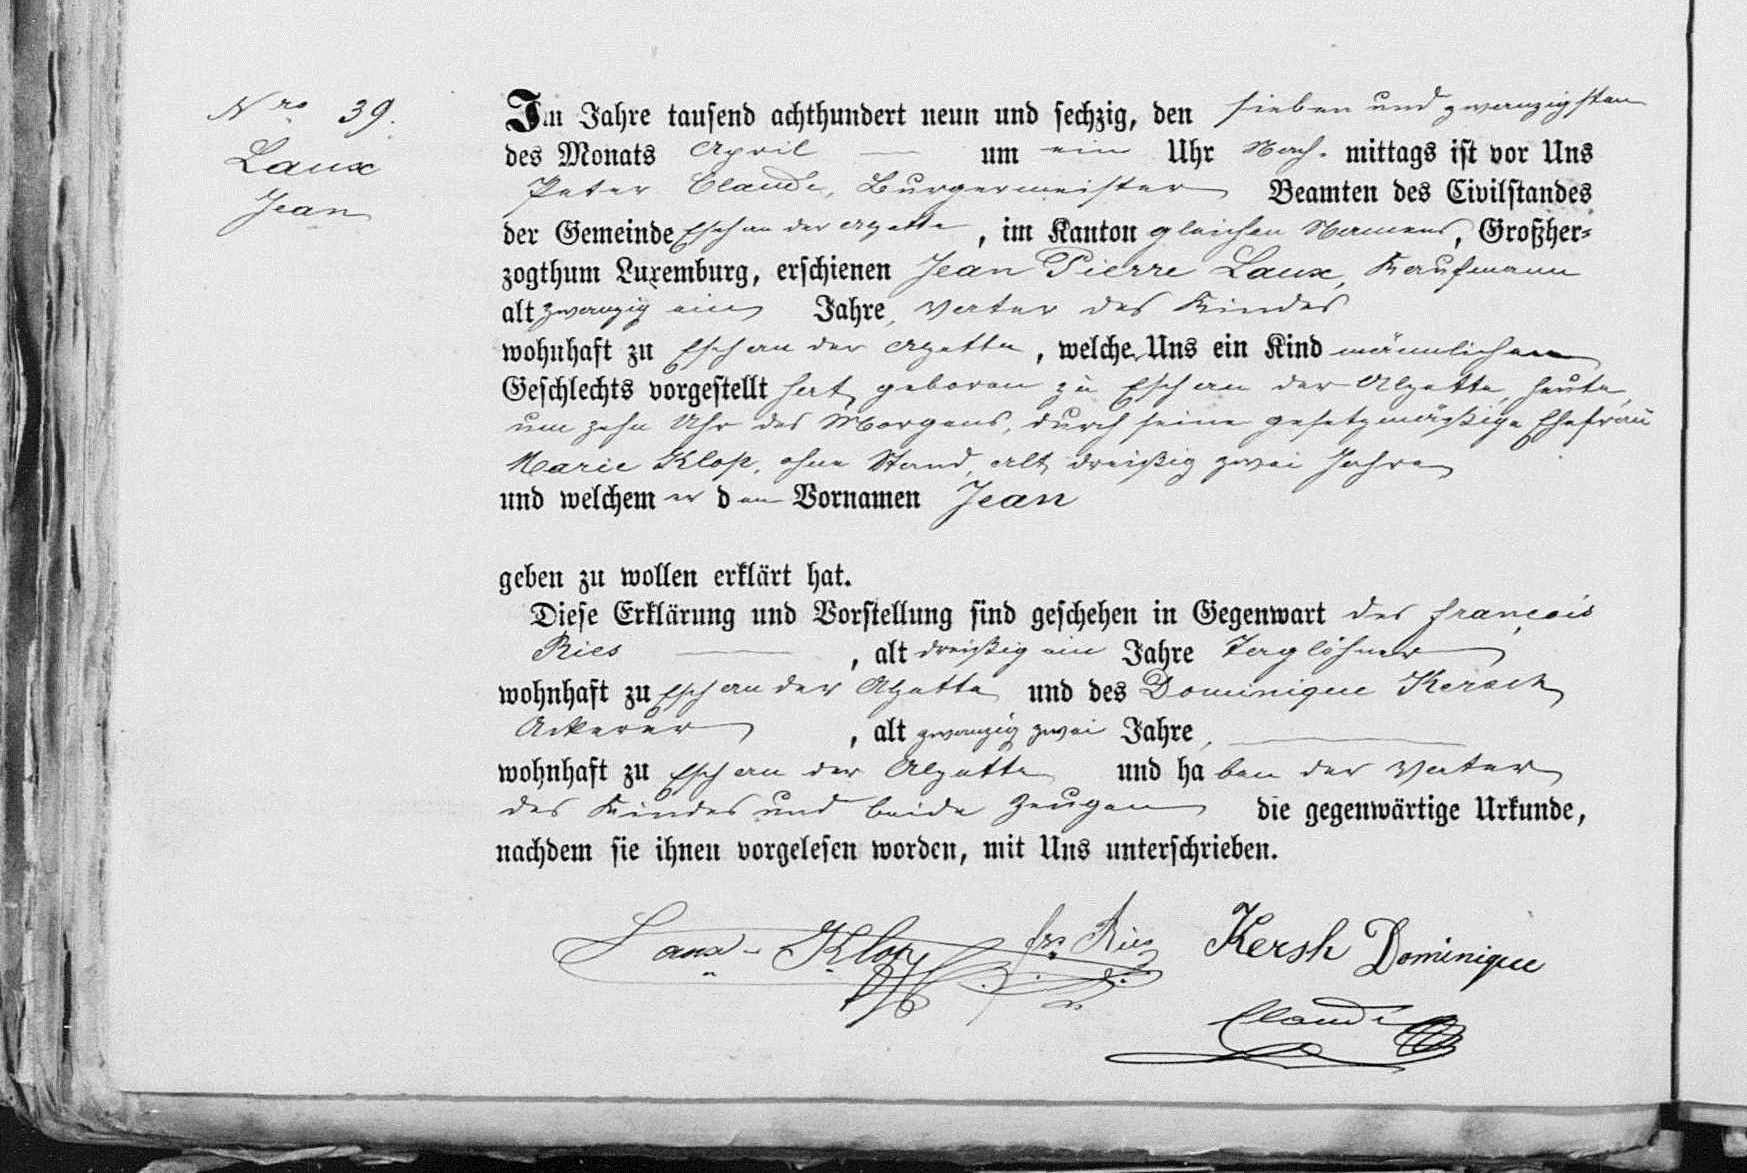 Nro 39.
Laux
Jean
Im Jahre tausend achthundert neun und sechzig, den sieben und zwanzigsten
des Monats April — um ein Uhr Nach- mittags ist vor Uns
Peter Claude, Burgermeister Beamten des Civilstandes
der Gemeinde Esch an der Alzette, im Kanton gleichen Namens, Großher-
zogthum Luxemburg, erschienen Jean Pierre Laux, Kaufmann
alt zwanzig ein Jahre, Vater des Kindes
wohnhaft zu Esch an der Alzette, welcher Uns ein Kind männlichen
Geschlechts vorgestellt hat, geboren zu Esch an der Alzette, heute,
um zehn Uhr des Morgens, durch seine gesetzmäßige Ehefrau
Marie Klop, ohne Stand, alt dreißig zwei Jahre
und welchem er den Vornamen Jean
geben zu wollen erklärt hat.
Diese Erklärung und Vorstellung sind geschehen in Gegenwart des François
Ries —, alt dreißig ein Jahre Taglöhner
wohnhaft zu Esch an der Alzette und des Dominique Kersch
Ackerer, alt zwanzig zwei Jahre, —
wohnhaft zu Esch an der Alzette und haben der Vater
des Kindes und beide Zeugen die gegenwärtige Urkunde,
nachdem sie ihnen vorgelesen worden, mit Uns unterschrieben.
Laux-Klop frs Ries Kersh Dominique
Claude